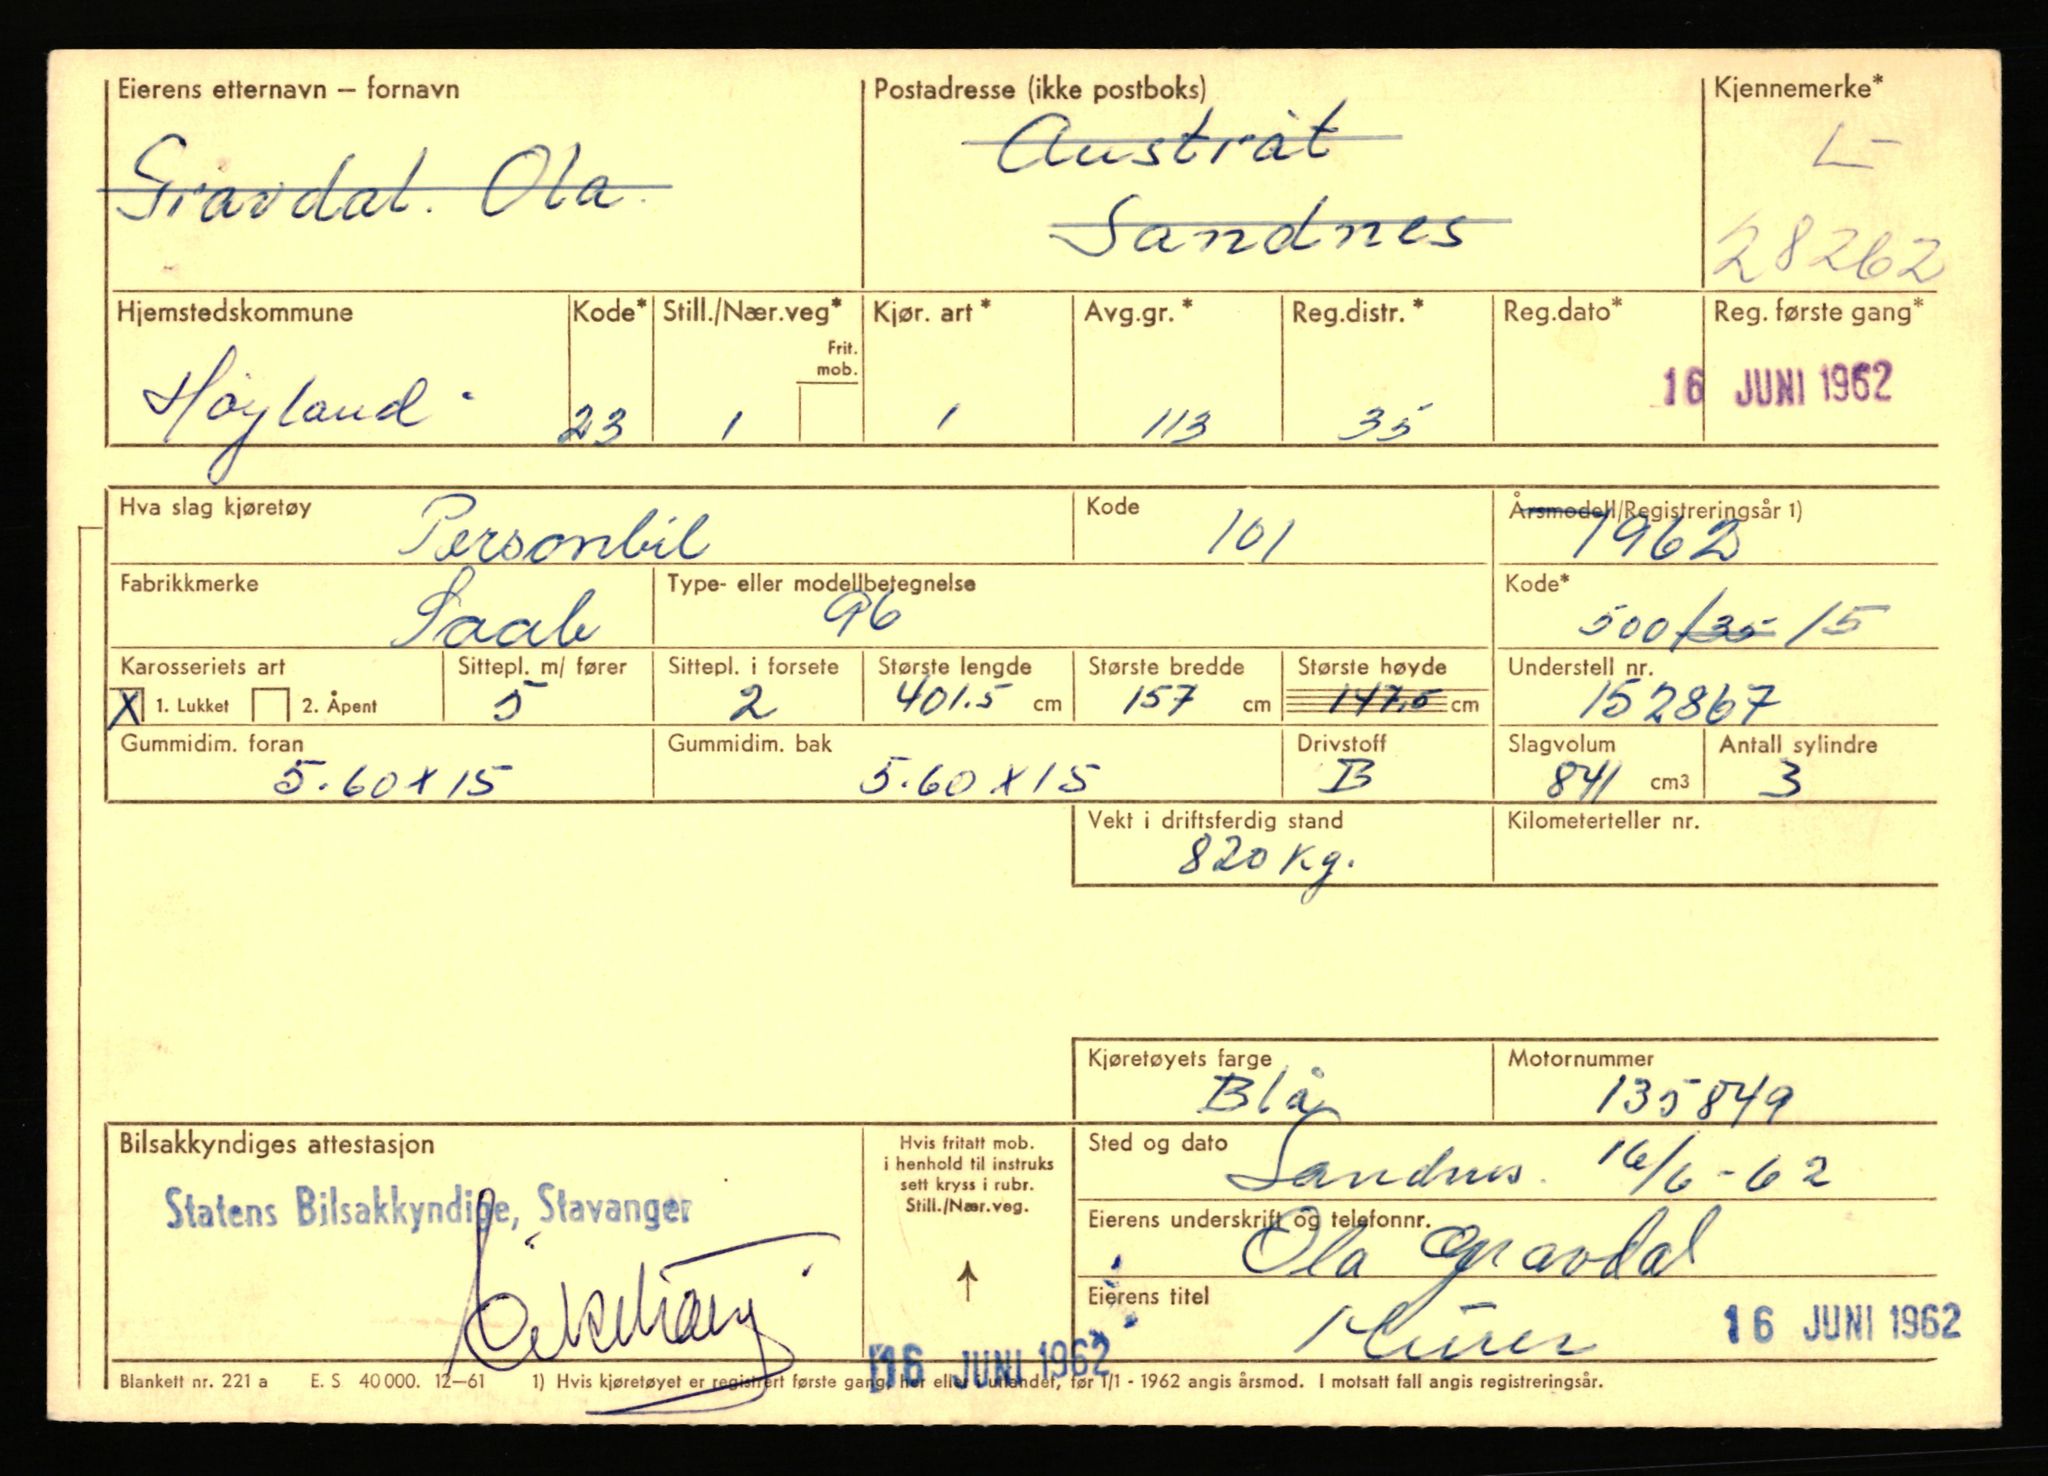 Eierens etternavn – fornavn
Gravdal. Ola.
Postadresse (ikke postboks)
Austråt
Sandnes
Kjennemerke*
L-
28262
Hjemstedskommune
Høyland
Kode*
23
Still./Nær.veg*
Frit.
mob.
1
Kjør. art*
1
Avg.gr.*
113
Reg.distr.*
35
Reg.dato*
Reg. første gang*
16 JUNI 1962
Hva slag kjøretøy
Personbil
Kode
101
Årsmodell/Registreringsår 1)
1962
Fabrikkmerke
Saab
Type- eller modellbetegnelse
96
Kode*
500/35/5
Karosseriets art
X 1. Lukket 2. Åpent
Sittepl. m/ fører
5
Sittepl. i forsete
2
Største lengde
401.5 cm
Største bredde
157 cm
Største høyde
147,5 cm
Understell nr.
152867
Gummidim. foran
5.60x15
Gummidim. bak
5.60x15
Drivstoff
B
Slagvolum
841 cm3
Antall sylindre
3
Vekt i driftsferdig stand
820 kg.
Kilometerteller nr.
Kjøretøyets farge
Blå
Motornummer
135849
Bilsakkyndiges attestasjon
Statens Bilsakkyndige, Stavanger
Hvis fritatt mob.
i henhold til instruks
sett kryss i rubr.
Still./Nær.veg.
16 JUNI 1962
Sted og dato
Sandnes. 16/6-62
Eierens underskrift og telefonnr.
Ola Gravdal
Eierens titel
Murer
16 JUNI 1962
Blankett nr. 221 a E. S 40 000. 12–61 1) Hvis kjøretøyet er registrert første gang, her eller i utlandet, før 1/1 - 1962 angis årsmod. I motsatt fall angis registreringsår.